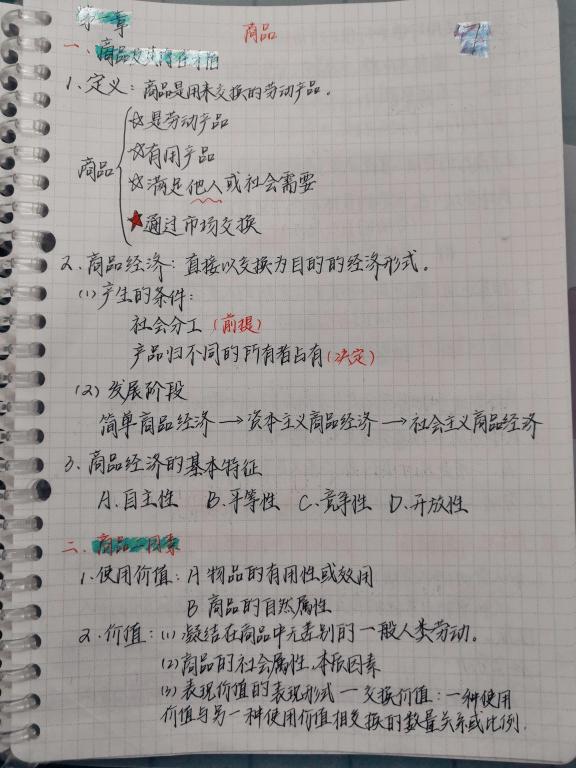 第一章 商品
一、商品及其存在
1、定义：商品是用来交换的劳动产品。
商品
☆是劳动产品
☆有用产品
☆满足他人或社会需要
★通过市场交换
2、商品经济：直接以交换为目的的经济形式。
(1)产生的条件：
社会分工(前提)
产品归不同的所有者占有(决定)
(2)发展阶段
简单商品经济→资本主义商品经济→社会主义商品经济
3、商品经济的基本特征
A.自主性 B.平等性 C.竞争性 D.开放性
二、商品二因素
1、使用价值：A 物品的有用性或效用
B 商品的自然属性
2、价值：(1)凝结在商品中无差别的一般人类劳动。
(2)商品的社会属性,本质因素
(3)表现价值的表现形式—交换价值：一种使用
价值与另一种使用价值相交换的数量关系或比例.